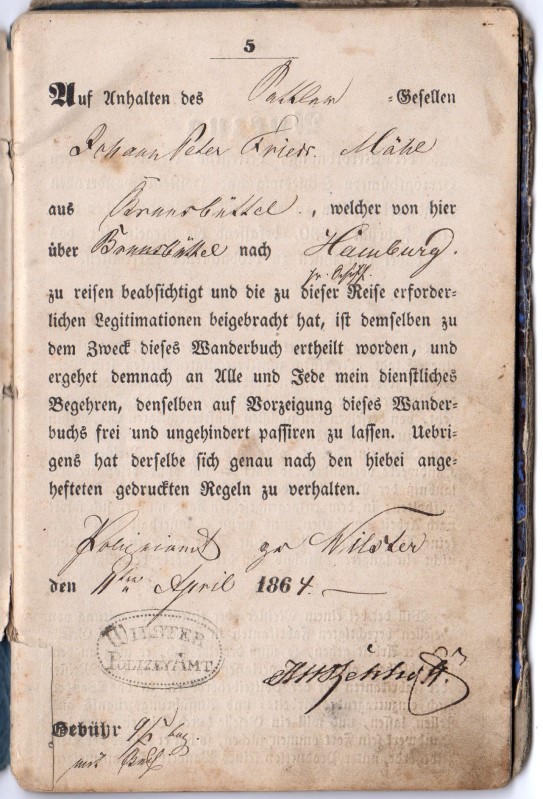 5
Auf Anhalten des Sattler =Gesellen
Johann Peter Friedr. Mähl
aus Brunsbüttel., welcher von hier
über Brunsbüttel nach Hamburg.
pr. Schiff.
zu reisen beabsichtigt und die zu dieser Reise erforder=
lichen Legitimationen beigebracht hat, ist demselben zu
dem Zweck dieses Wanderbuch ertheilt worden, und
ergehet demnach an Alle und Jede mein dienstliches
Begehren, denselben auf Vorzeigung dieses Wander=
buchs frei und ungehindert passiren zu lassen. Uebri=
gens hat derselbe sich genau nach den hiebei ange=
hefteten gedruckten Regeln zu verhalten.
Polizeiamt zu Wilster
den April 1864.
WILSTER
POLIZEY AMT.
Gebühr
mit